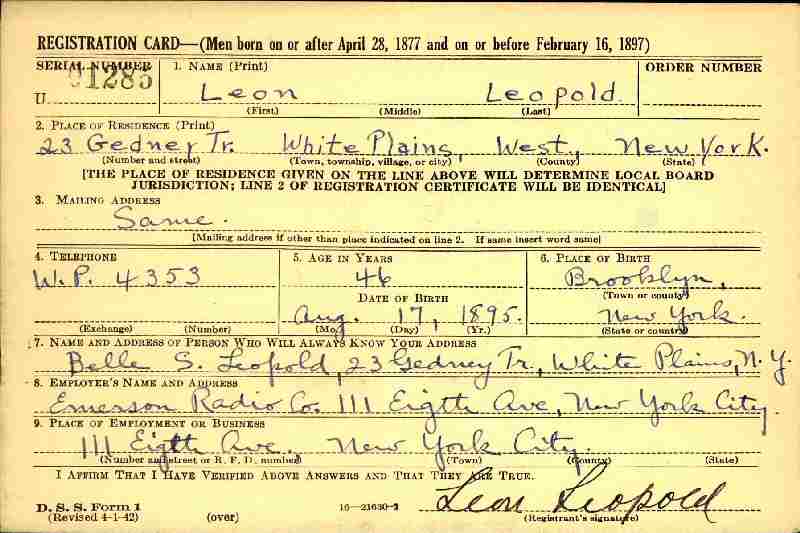 REGISTRATION CARD—(Men born on or after April 28, 1877 and on or before February 16, 1897)
SERIAL NUMBER 1. NAME (Print) ORDER NUMBER
U. 1285 Leon Leopold.
(First) (Middle) (Last)
2. PLACE OF RESIDENCE (Print)
23 Gedney Tr. White Plains, West., New York.
(Number and street) (Town, township, village, or city) (County) (State)
[THE PLACE OF RESIDENCE GIVEN ON THE LINE ABOVE WILL DETERMINE LOCAL BOARD
JURISDICTION; LINE 2 OF REGISTRATION CERTIFICATE WILL BE IDENTICAL]
3. MAILING ADDRESS
Same.
[Mailing address if other than place indicated on line 2. If same insert word same]
4. TELEPHONE 5. AGE IN YEARS 6. PLACE OF BIRTH
W.P. 4353 46 Brooklyn,
DATE OF BIRTH (Town or county)
Aug. 17, 1895. New York.
(Exchange) (Number) (Mo.) (Day) (Yr.) (State or country)
7. NAME AND ADDRESS OF PERSON WHO WILL ALWAYS KNOW YOUR ADDRESS
Belle S. Leopold, 23 Gedney Tr., White Plains, N.Y.
8. EMPLOYER'S NAME AND ADDRESS
Emerson Radio Co. 111 Eigth Ave, New York City.
9. PLACE OF EMPLOYMENT OR BUSINESS
111 Eigth Ave. New York City.
(Number and street or R. F. D. number) (Town) (County) (State)
I AFFIRM THAT I HAVE VERIFIED ABOVE ANSWERS AND THAT THEY ARE TRUE.
Leon Leopold
D. S. S. Form 1 16—21630-2
(Revised 4-1-42) (over) (Registrant's signature)